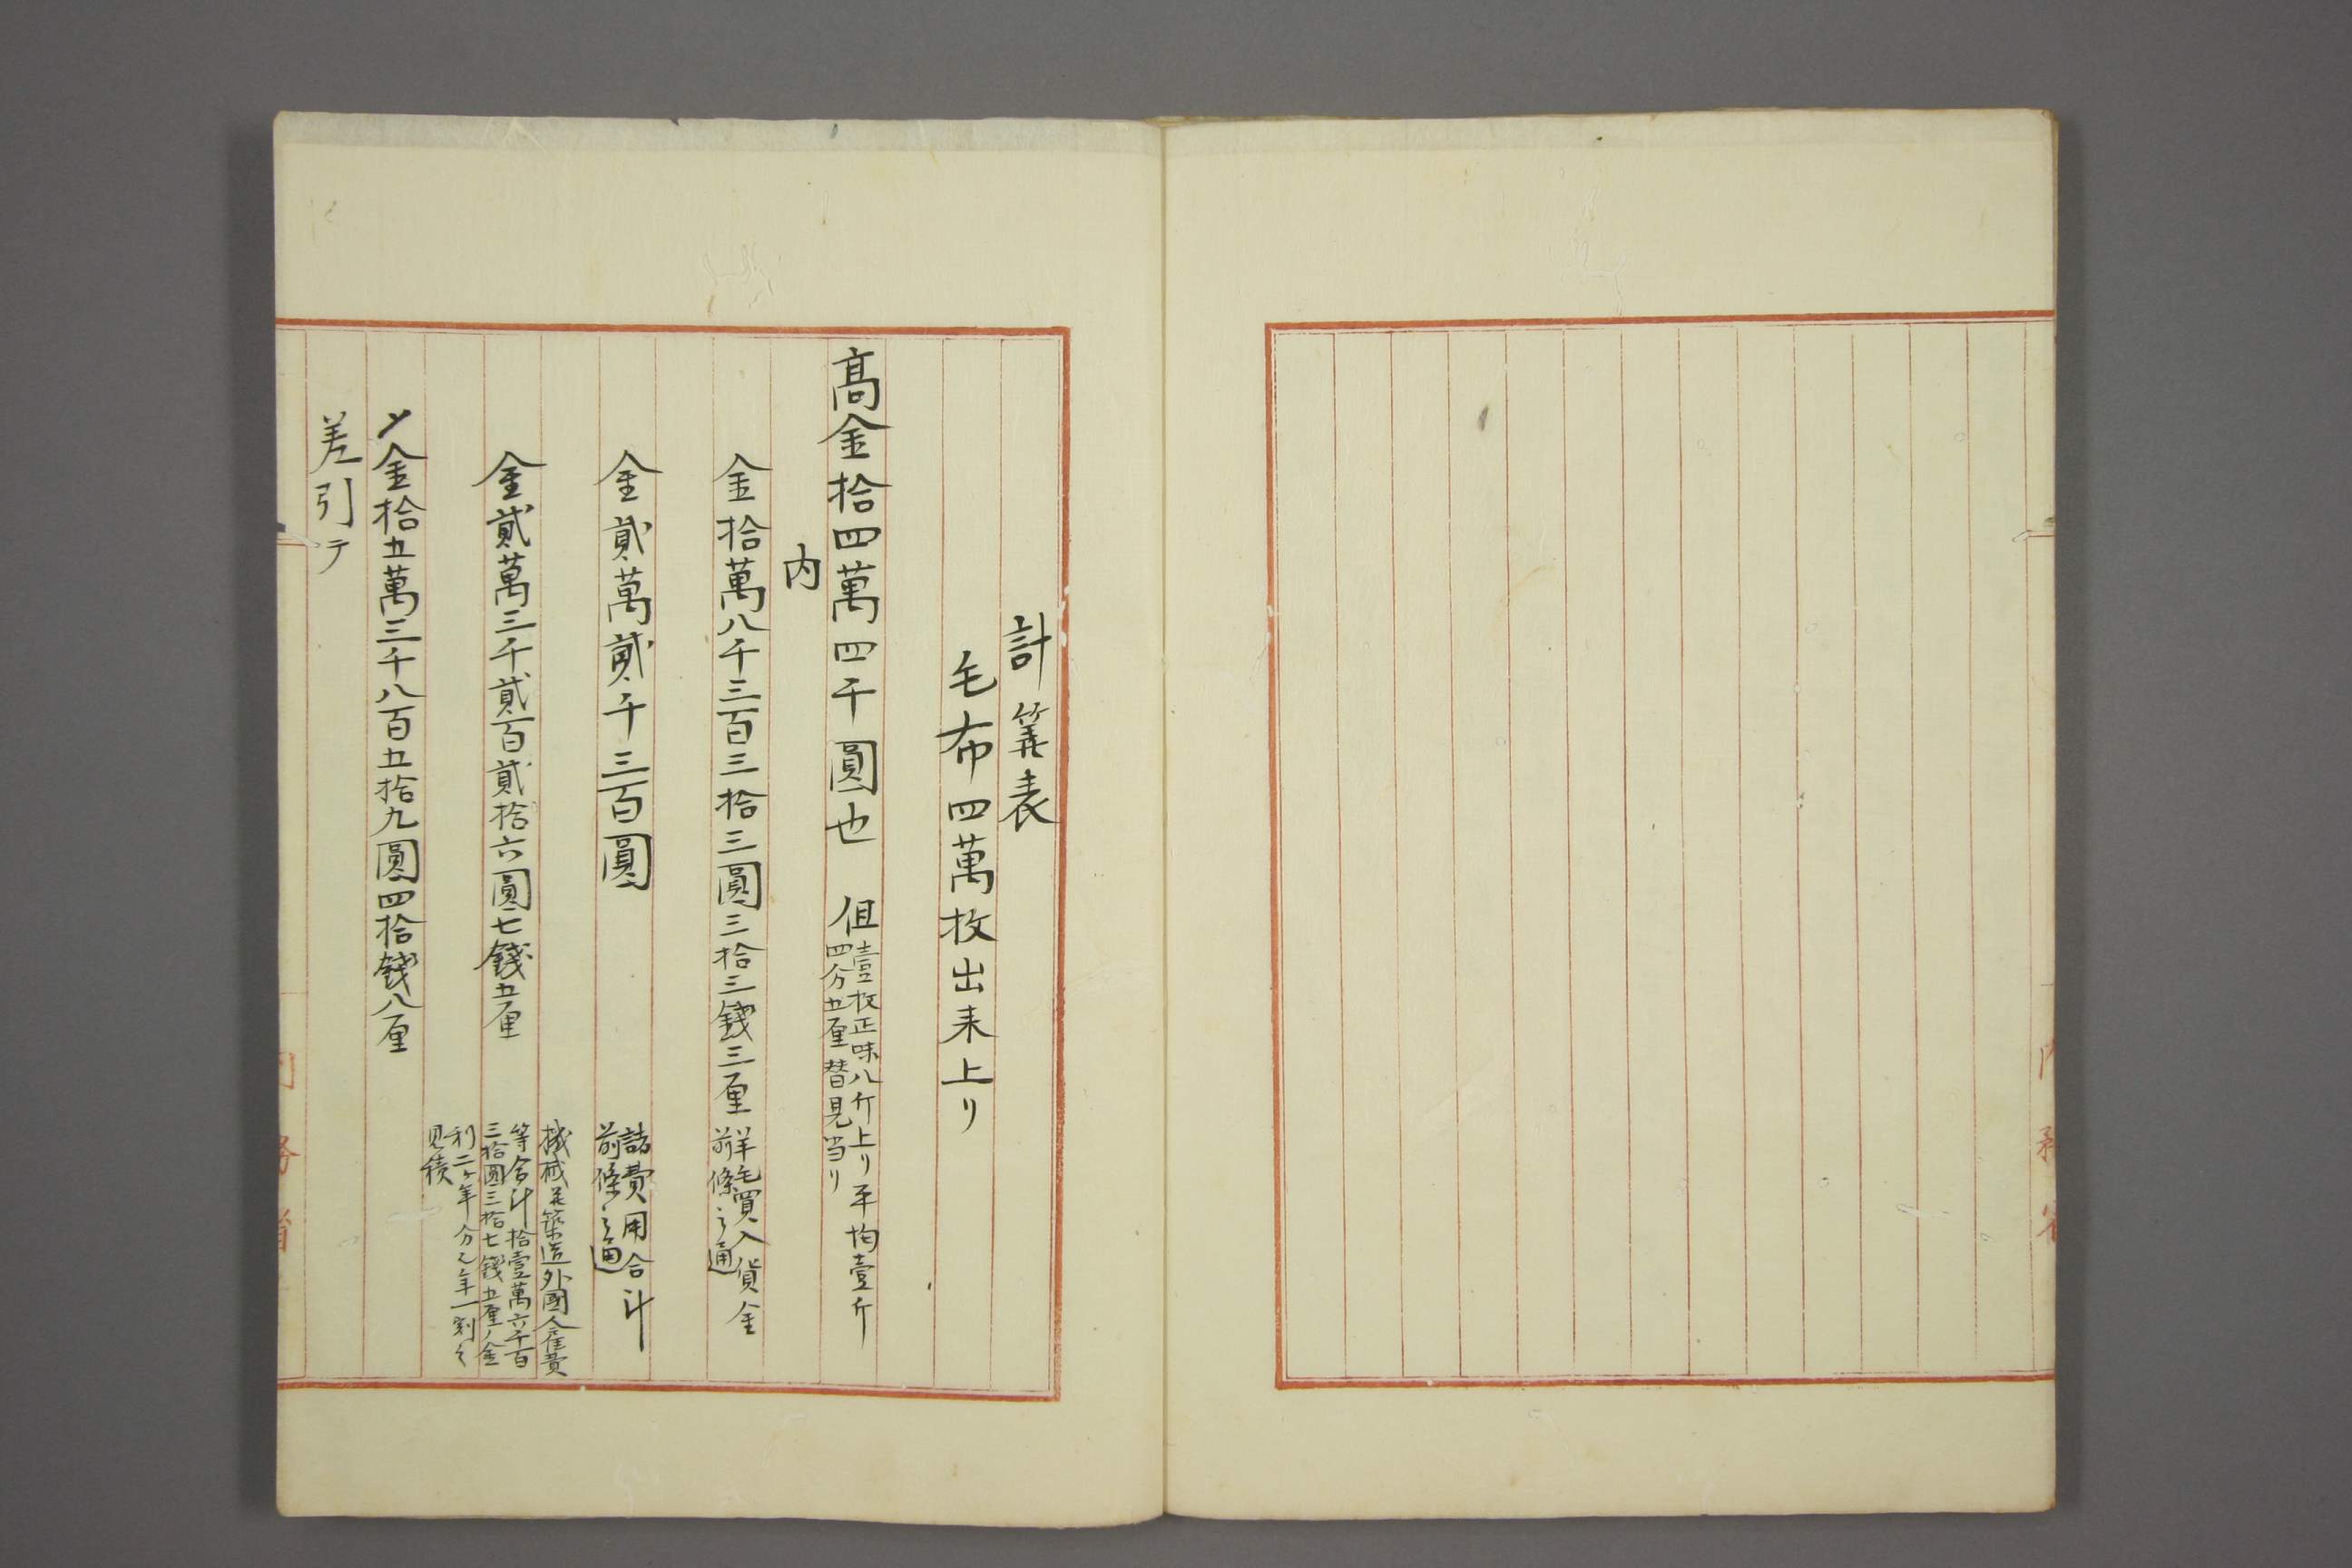 計筭表
毛布四萬枚出来上リ
髙金拾四萬四千圓也 但壹枚正味八斤上リ平均壹斤
四分五厘替見当リ
内
金拾萬八千三百三拾三圓三拾三錢三厘 羊毛買入貨金
前條之通
金貳萬貳千三百圓 諸費用合計
前條之通
金貳萬三千貳百貳拾六圓七錢五厘 機械并築造外國人雇費
等合計拾壹萬六千百
三拾圓三拾七錢五厘ノ金
利二ヶ年分元年一割之
見積
〆金拾五萬三千八百五拾九圓四拾錢八厘
差引テ
内務省